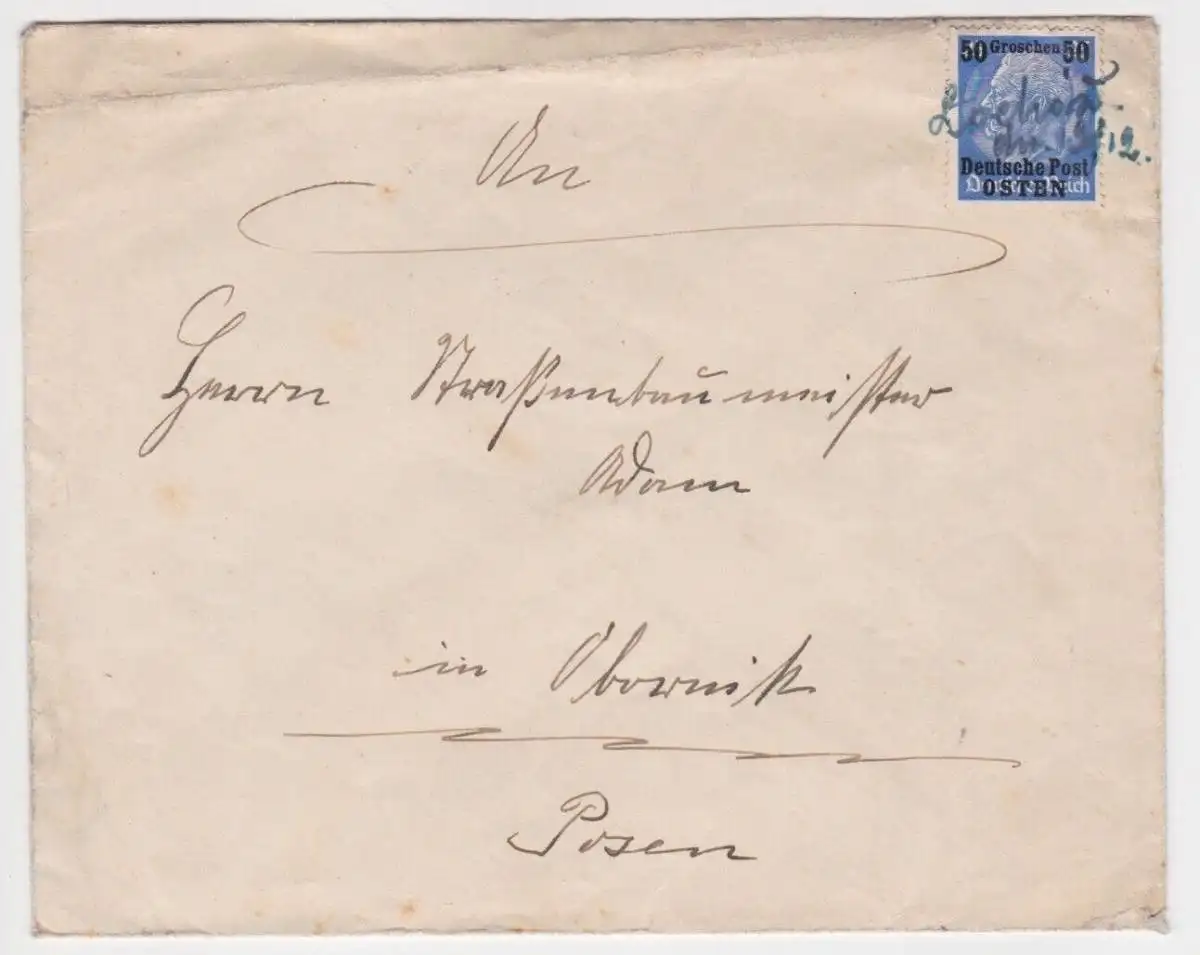 50 Groschen 50
Deutsche Post
OSTEN
Deutsches Reich
An
Herrn Straßenbaumeister
Adam
in Obornik
Posen